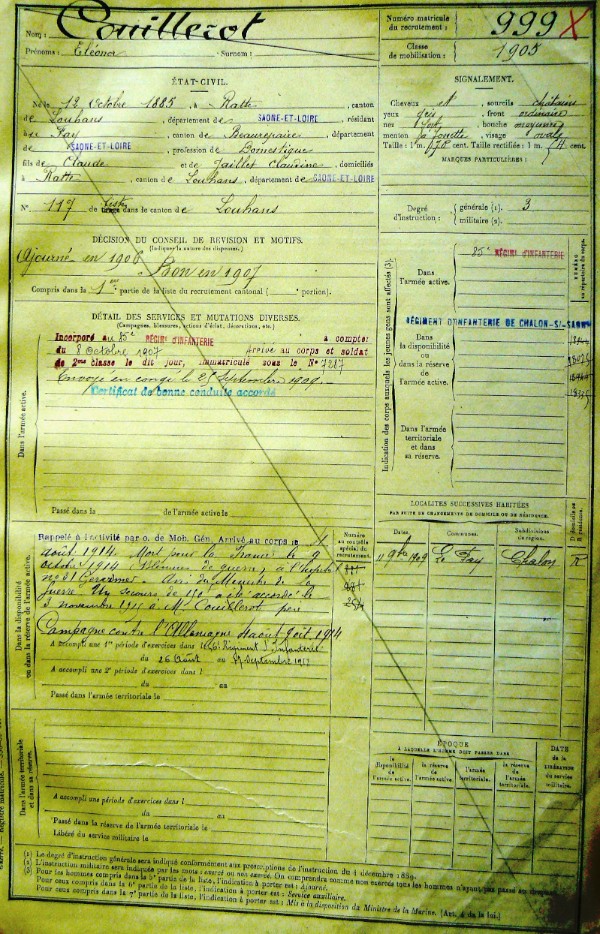 Nom : Couillerot
Prénoms : Eléonor Surnom :
Numéro matricule du recrutement : 999 X
Classe de mobilisation : 1905
ÉTAT-CIVIL.
Né le 12 Octobre 1885, à Ratte, canton
de Louhans, département de SAONE-ET-LOIRE, résidant
à Le Fay, canton de Beaurepaire, département
de SAONE-ET-LOIRE, profession de Domestique
fils de Claude et de Jaillet Claudine, domiciliés
à Ratte, canton de Louhans, département de SAONE-ET-LOIRE
N° 117 de liste dans le canton de Louhans
SIGNALEMENT.
Cheveux et sourcils châtains
yeux gris, front ordinaire
nez fort, bouche moyenne
menton à fossette, visage ovale
Taille : 1 m. cent. Taille rectifiée : 1 m. cent.
MARQUES PARTICULIÈRES :
Degré d'instruction : générale (1). 3
militaire (2).
DÉCISION DU CONSEIL DE RÉVISION ET MOTIFS.
(Indiquer la nature des dispenses.)
Ajourné en 1906 Bon en 1907
Compris dans la 1ère partie de la liste du recrutement cantonal ( portion).
DÉTAIL DES SERVICES ET MUTATIONS DIVERSES.
(Campagnes, blessures, actions d'éclat, décorations, etc.)
Dans l'armée active.
Incorporé au RÉGIMENT D'INFANTERIE à compter
du 8 Octobre 1907 Arrivé au corps et soldat
de 2ème classe le dit jour, immatriculé sous le N° 7217
Envoyé en congé le 25 Septembre 1909.
Certificat de bonne conduite accordé
Passé dans la de l'armée active le
Indication des corps auxquels les jeunes gens sont affectés (3).
NUMÉRO au répertoire du corps.
Dans l'armée active.
RÉGIMENT D'INFANTERIE
RÉGIMENT D'INFANTERIE DE CHALON-S/-SAONE
Dans la disponibilité ou dans la réserve de l'armée active.
Dans l'armée territoriale et dans sa réserve.
LOCALITÉS SUCCESSIVES HABITÉES
PAR SUITE DE CHANGEMENTS DE DOMICILE OU DE RÉSIDENCE.
Dates. Communes. Subdivisions de région. D. domicile ou R. résidence.
9bre 1909 Le Fay Chalon R
Dans la disponibilité ou dans la réserve de l'armée active.
Numéro au contrôle spécial du recrutement.
Rappelé à l'activité par o. de Mob. Gén. Arrivé au corps le
août 1914. Mort pour la France le 9
octobre 1914 (Blessures de guerre) à l'hôpital
n° 81 Gérardmer. Avis du Ministre de la
guerre. Un secours de 150f a été accordé le
novembre 1915 à Mr Couillerot père
Campagne contre l'Allemagne 1914
A accompli une 1re période d'exercices dans le Régiment d'Infanterie
du 26 Août au Septembre
A accompli une 2e période d'exercices dans l
du au
Passé dans l'armée territoriale le
Dans l'armée territoriale et dans sa réserve.
A accompli une période d'exercices dans l
du au
Passé dans la réserve de l'armée territoriale le
Libéré du service militaire le
ÉPOQUE
À LAQUELLE L'HOMME DOIT PASSER DANS
la disponibilité de l'armée active. la réserve de l'armée active. l'armée territoriale. la réserve de l'armée territoriale.
DATE de la LIBÉRATION du service militaire.
(1) Le degré d'instruction générale sera indiqué conformément aux prescriptions de l'instruction du 4 décembre 1889.
(2) L'instruction militaire sera indiquée par les mots : exercé ou non exercé. On comprendra comme non exercés tous les hommes n'ayant pas passé
(3) Pour les hommes compris dans la 5e partie de la liste, l'indication à porter est : Ajourné.
Pour ceux compris dans la 6e partie de la liste, l'indication à porter est : Service auxiliaire.
Pour ceux compris dans la 7e partie de la liste, l'indication à porter est : Mis à la disposition du Ministre de la Marine. (Art. 4 de la loi.)